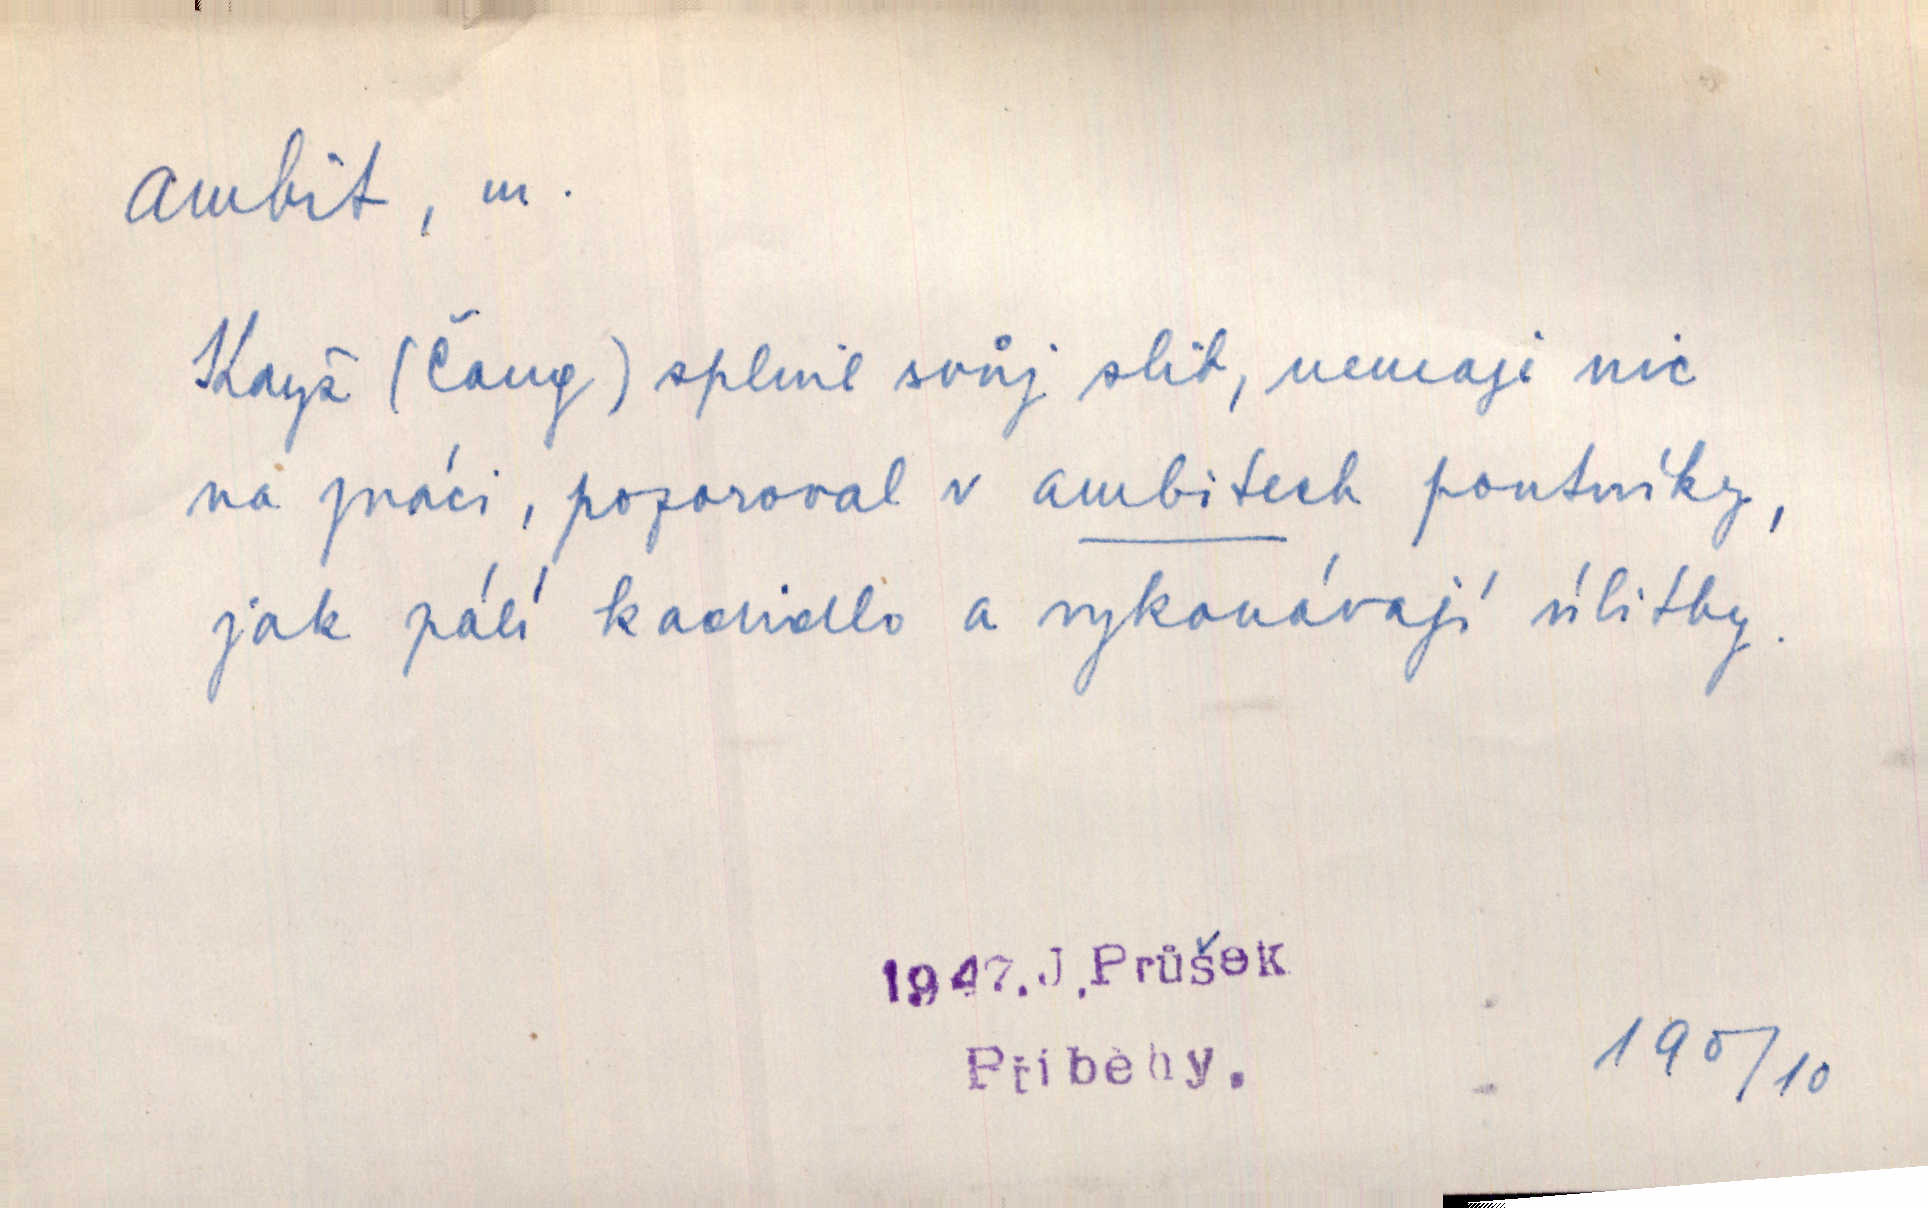 ambit, m.
Když (Čang) splnil svůj slib, nemaje nic
na práci, pozoroval v ambitech poutníky,
jak pálí kadidlo a vykonávají úlitby.
1947. J. Průšek
Příběhy.
190/10